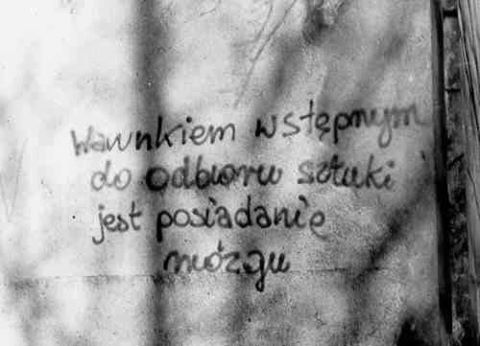 Warunkiem wstępnym
do odbioru sztuki
jest posiadanie
mózgu